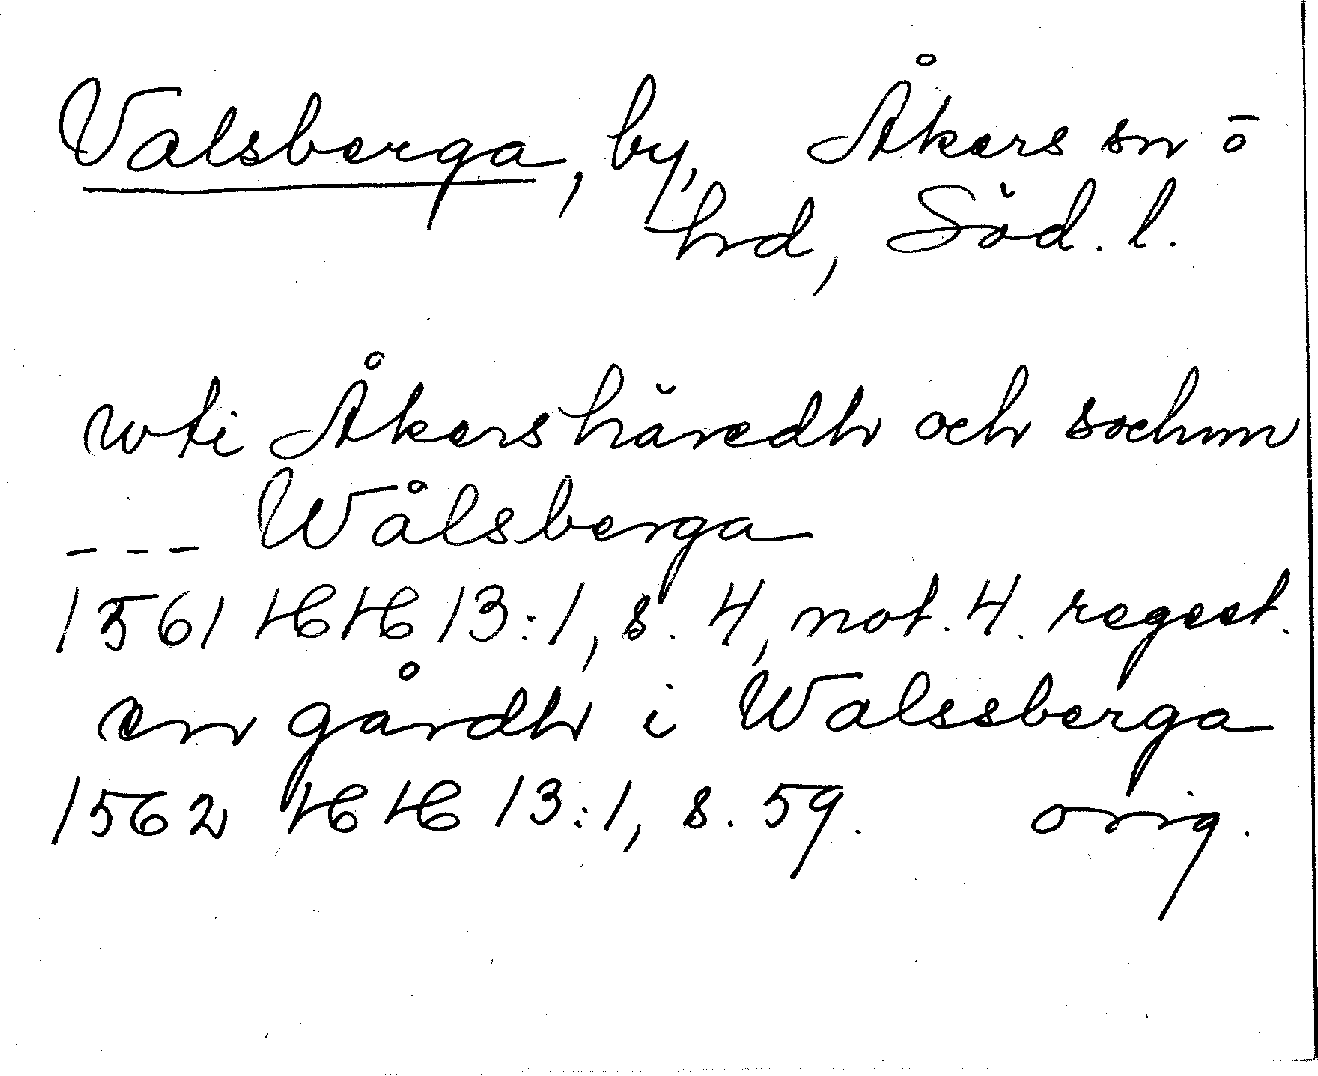 Valsberga, by, Åkers sn o
hd, Söd. l.
wti Åkershäredh och sochnn
--- Wålsberga
1561 HH 13:1, s. 4, not. 4. regest.
en gårdh i Walssberga
1562 HH 13:1, s. 59. orig.